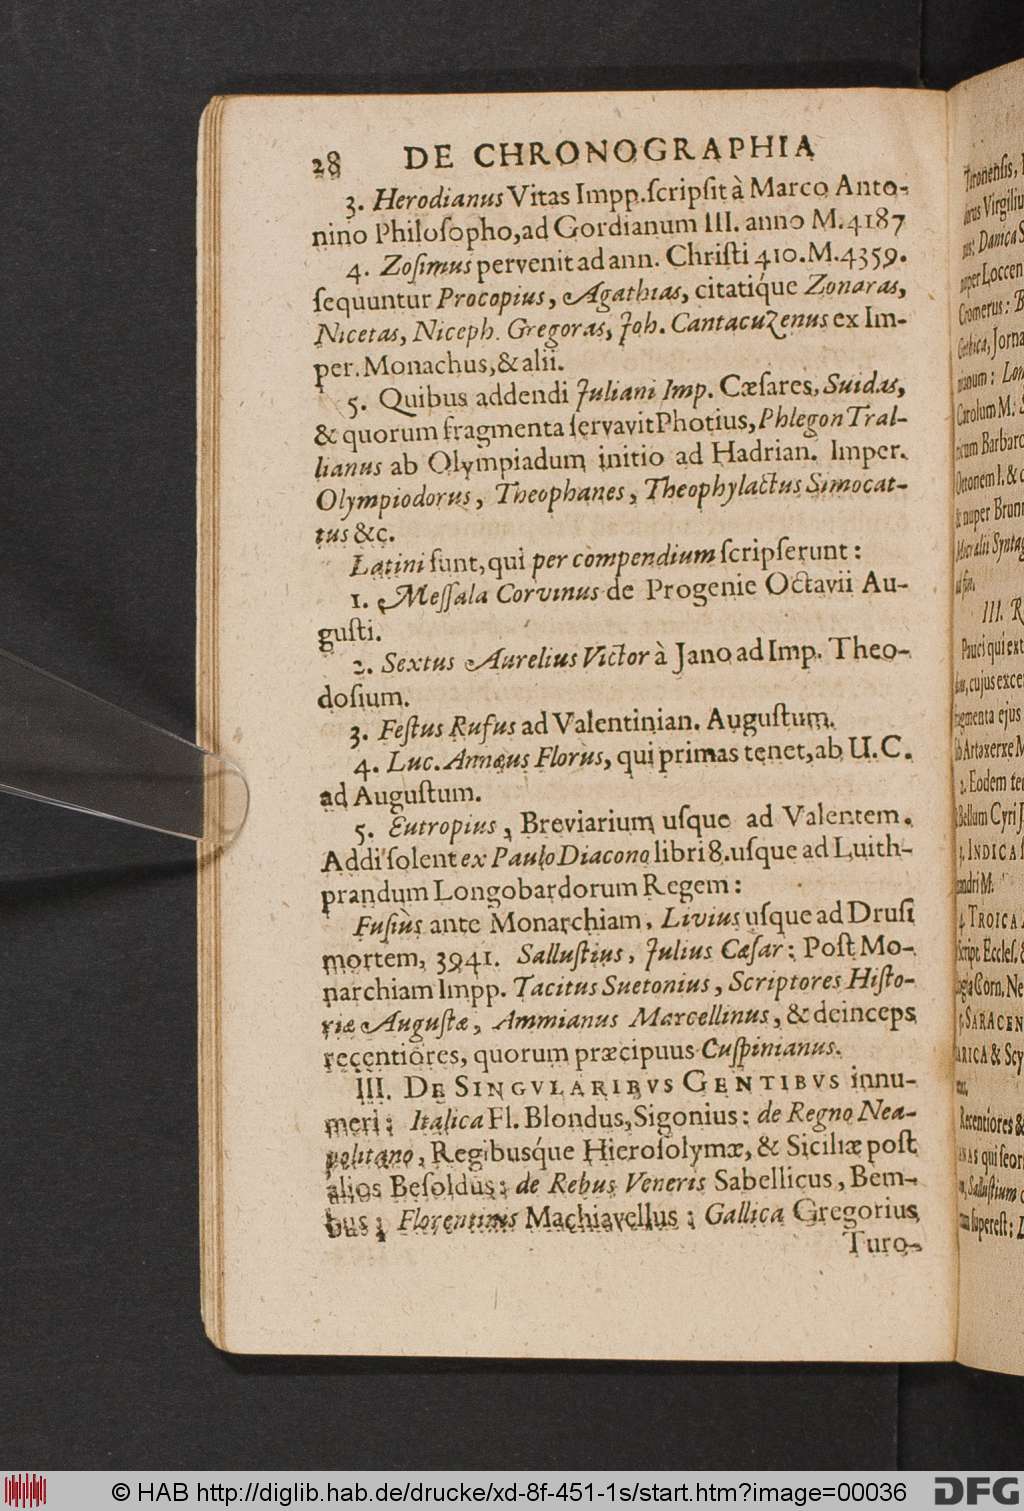 28 DE CHRONOGRAPHIA
3. Herodianus Vitas Impp. ſcripſit à Marco Anto-
nino Philoſopho, ad Gordianum III. anno M. 4187
4. Zoſimus pervenit ad ann. Chriſti 410. M. 4359.
ſequuntur Procopius, Agathias, citatiq́ue Zonaras,
Nicetas, Niceph. Gregoras, Joh. Cantacuzenus ex Im-
per. Monachus, & alii.
5. Quibus addendi Juliani Imp. Cæſares, Suidas,
& quorum fragmenta ſervavit Photius, Phlegon Tral-
lianus ab Olympiadum initio ad Hadrian. Imper.
Olympiodorus, Theophanes, Theophylactus Simocat-
tus &c.
Latini ſunt, qui per compendium ſcripſerunt:
1. Meſſala Corvinus de Progenie Octavii Au-
guſti.
2. Sextus Aurelius Victor à Jano ad Imp. Theo-
doſium.
3. Feſtus Rufus ad Valentinian. Auguſtum.
4. Luc. Annæus Florus, qui primas tenet, ab U. C.
ad Auguſtum.
5. Eutropius, Breviarium uſque ad Valentem.
Addi ſolent ex Paulo Diacono libri 8. uſque ad Luith-
prandum Longobardorum Regem:
Fuſiùs ante Monarchiam, Livius uſque ad Druſi
mortem, 3941. Salluſtius, Julius Cæſar: Poſt Mo-
narchiam Impp. Tacitus Suetonius, Scriptores Hiſto-
riæ Auguſtæ, Ammianus Marcellinus, & deinceps
recentiores, quorum præcipuus Cuſpinianus.
III. DE SINGVLARIBVS GENTIBVS innu-
meri: Italica Fl. Blondus, Sigonius: de Regno Nea-
politano, Regibusq́ue Hieroſolymæ, & Siciliæ poſt
alios Beſoldus: de Rebus Veneris Sabellicus, Bem-
bus; Florentinis Machiavellus; Gallica Gregorius
Turo-
Turonenſis,
Virgiliu
Danica S
nuper Loccen
Cromerus: B
Gothica, Jorna
Carolum M:
Barbaro
Ottonem I. & c
& nuper Brunn
Syntag
III. R
Pauci qui ext
cujus exce
fragmenta ejus
ab Artaxerxe M
2. Eodem te
Bellum Cyri J
3. INDICA
andri M.
4. TROICA
Script. Eccleſ. &
Corn. Ne
5. SARACEN
ARICA & Scy
Recentiores &
qui ſeor
Salluſtium
ſupereſt:
© HAB http://diglib.hab.de/drucke/xd-8f-451-1s/start.htm?image=00036
DFG